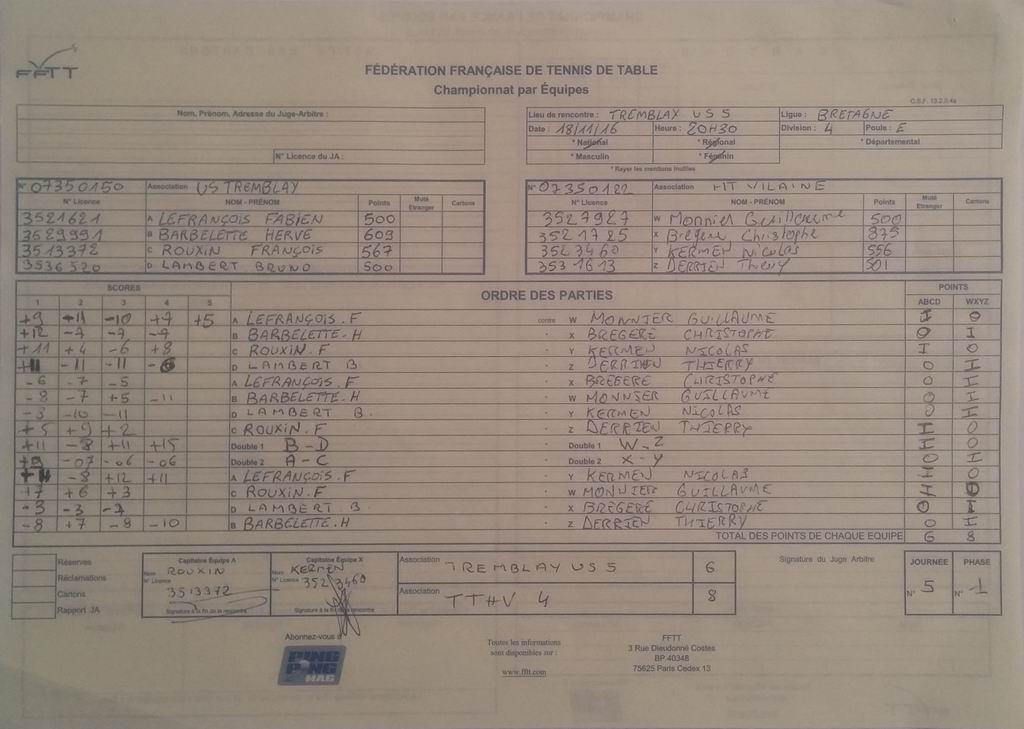 FFTT
FÉDÉRATION FRANÇAISE DE TENNIS DE TABLE
Championnat par Équipes
C.S.F. 13.2.0.4a
Nom, Prénom, Adresse du Juge-Arbitre :
N° Licence du JA :
Lieu de rencontre : TREMBLAY US 5 Ligue : BRETAGNE
Date : 18/11/16 Heure : 20H30 Division : 4 Poule : E
* National * Régional * Départemental
* Masculin * Féminin
* Rayer les mentions inutiles
N° 07350150 Association US TREMBLAY
N° Licence NOM - PRÉNOM Points Muté Etranger Cartons
3521621 A LEFRANÇOIS FABIEN 500
3529991 B BARBELETTE HERVE 609
3513372 C ROUXIN FRANÇOIS 567
3536520 D LAMBERT BRUNO 500
N° 07350122 Association HT VILAINE
N° Licence NOM - PRÉNOM Points Muté Etranger Cartons
3527927 W Monnier Guillaume 500
3521725 X Brégère Christophe 875
3523460 Y KERMEN Nicolas 556
3531613 Z DERRIEN Thierry 501
SCORES ORDRE DES PARTIES POINTS
1 2 3 4 5 ABCD WXYZ
+9 +11 -10 +7 +5 A LEFRANÇOIS.F contre W MONNIER GUILLAUME I O
+12 -7 -7 -7 B BARBELETTE.H X BREGERE CHRISTOPHE O I
+11 +4 -6 +8 C ROUXIN.F Y KERMEN NICOLAS I O
-11 -11 D LAMBERT B Z DERRIEN THIERRY O I
-6 -7 -5 A LEFRANÇOIS.F X BREGERE CHRISTOPHE O I
-8 -7 +5 -11 B BARBELETTE.H W MONNIER GUILLAUME O I
-3 -10 -11 D LAMBERT B. Y KERMEN NICOLAS O I
+5 +9 +2 C ROUXIN.F Z DERRIEN THIERRY I O
+11 -8 +11 +15 Double 1 B-D Double 1 W-Z I O
+9 -07 -06 -06 Double 2 A-C Double 2 X-Y O I
-8 +12 +11 A LEFRANÇOIS.F Y KERMEN NICOLAS I O
+7 +6 +3 C ROUXIN.F W MONNIER GUILLAUME I O
-3 -3 -7 D LAMBERT B X BREGERE CHRISTOPHE O I
-8 +7 -8 -10 B BARBELETTE.H Z DERRIEN THIERRY O I
TOTAL DES POINTS DE CHAQUE EQUIPE 6 8
Réserves
Réclamations
Cartons
Rapport JA
Capitaine Équipe A
Nom ROUXIN
N° Licence
3513372
Signature à la fin de la rencontre
Capitaine Équipe X
Nom KERMEN
N° Licence 3523460
Signature à la fin de la rencontre
Association TREMBLAY US 5 6
Association TTHV 4 8
Signature du Juge Arbitre
JOURNÉE PHASE
N° 5 N° 1
Abonnez-vous à
PING PONG MAG
Toutes les informations
sont disponibles sur :
www.fftt.com
FFTT
3 Rue Dieudonné Costes
BP 40348
75625 Paris Cedex 13